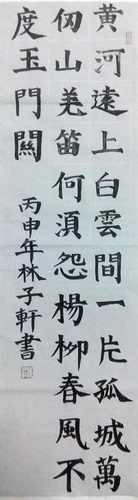 黄河遠上白雲間一片孤城萬
仞山羌笛何須怨楊柳春風不
度玉門關
丙申年林子軒書